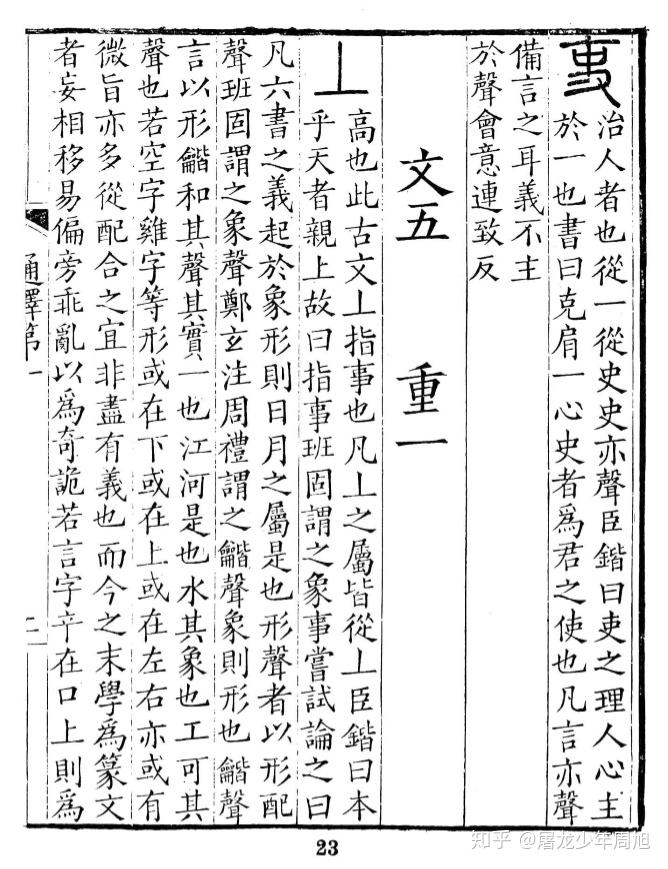 吏 治人者也從一從史史亦聲臣鍇曰吏之理人心主
於一也書曰克肩一心史者爲君之使也凡言亦聲
備言之耳義不主
於聲會意連致反
文五 重一
丄 高也此古文丄指事也凡丄之屬皆從丄臣鍇曰本
乎天者親上故曰指事班固謂之象事嘗試論之曰
凡六書之義起於象形則日月之屬是也形聲者以形配
聲班固謂之象聲鄭玄注周禮謂之龤聲象則形也龤聲
言以形龤和其聲其實一也江河是也水其象也工可其
聲也若空字雞字等形或在下或在上或在左右亦或有
微旨亦多從配合之宜非盡有義也而今之末學爲篆文
者妄相移易偏旁乖亂以爲奇詭若言字䇂在口上則爲
通釋第一 二
23
知乎 @屠龙少年周旭